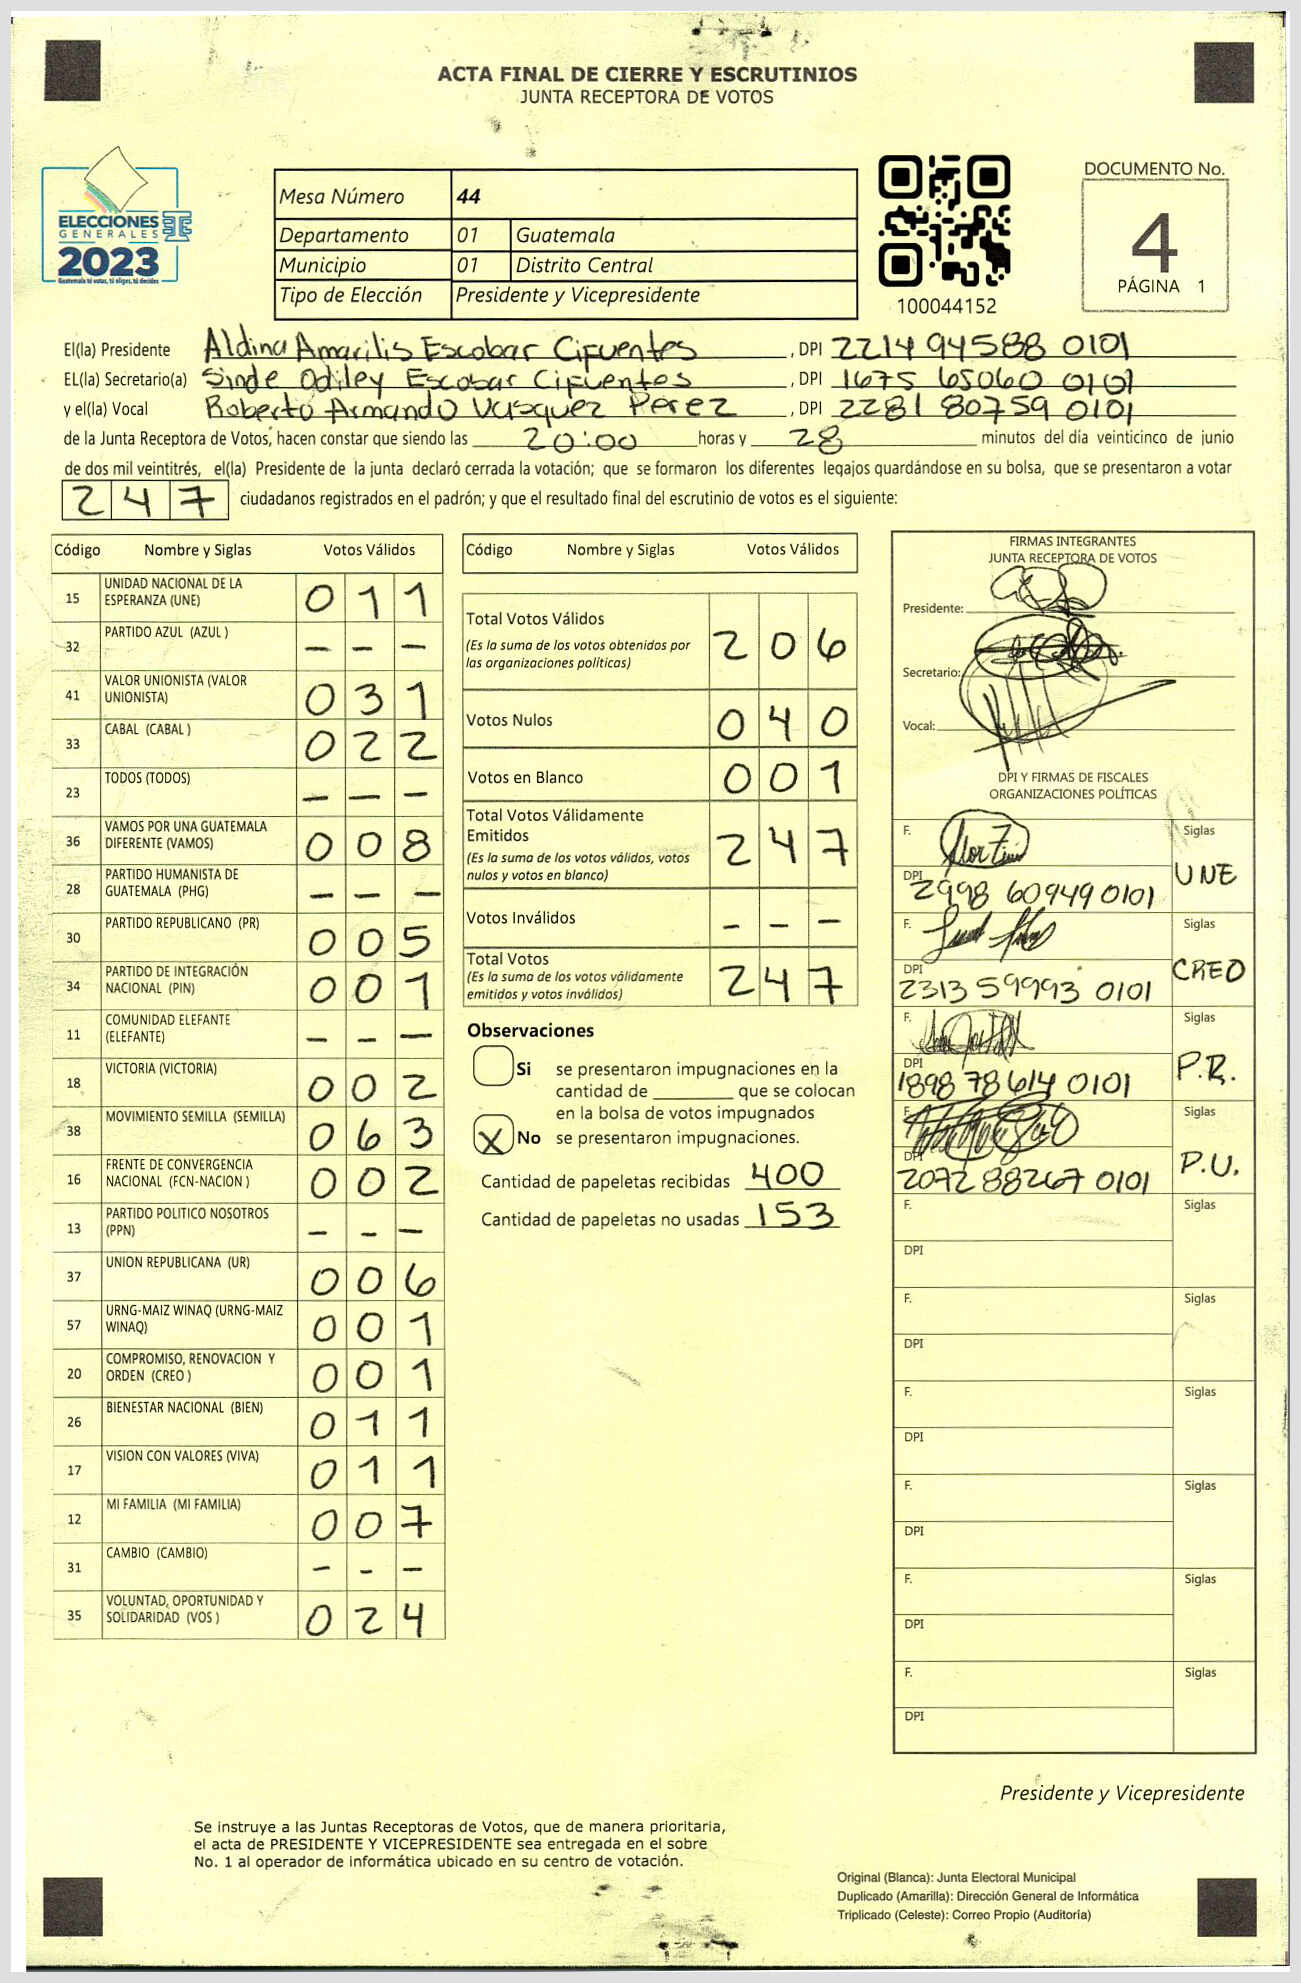 ACTA FINAL DE CIERRE Y ESCRUTINIOS
JUNTA RECEPTORA DE VOTOS
ELECCIONES
GENERALES
2023
Guatemala tú votas, tú eliges, tú decides
Mesa Número 44
Departamento 01 Guatemala
Municipio 01 Distrito Central
Tipo de Elección Presidente y Vicepresidente
100044152
DOCUMENTO No.
4
PÁGINA 1
El(la) Presidente Aldina Amarilis Escobar Cifuentes , DPI 2214 94588 0101
EL(la) Secretario(a) Sinde Odiley Escobar Cifuentos , DPI 1675 65060 0101
y el(la) Vocal Roberto Armando Vasquez Perez , DPI 2281 80759 0101
de la Junta Receptora de Votos, hacen constar que siendo las 20:00 horas y 28 minutos del día veinticinco de junio
de dos mil veintitrés, el(la) Presidente de la junta declaró cerrada la votación; que se formaron los diferentes legajos quardándose en su bolsa, que se presentaron a votar
247 ciudadanos registrados en el padrón; y que el resultado final del escrutinio de votos es el siguiente:
Código Nombre y Siglas Votos Válidos
15 UNIDAD NACIONAL DE LA ESPERANZA (UNE) 0 1 1
32 PARTIDO AZUL (AZUL ) - - -
41 VALOR UNIONISTA (VALOR UNIONISTA) 0 3 1
33 CABAL (CABAL ) 0 2 2
23 TODOS (TODOS) - - -
36 VAMOS POR UNA GUATEMALA DIFERENTE (VAMOS) 0 0 8
28 PARTIDO HUMANISTA DE GUATEMALA (PHG) - - -
30 PARTIDO REPUBLICANO (PR) 0 0 5
34 PARTIDO DE INTEGRACIÓN NACIONAL (PIN) 0 0 1
11 COMUNIDAD ELEFANTE (ELEFANTE) - - -
18 VICTORIA (VICTORIA) 0 0 2
38 MOVIMIENTO SEMILLA (SEMILLA) 0 6 3
16 FRENTE DE CONVERGENCIA NACIONAL (FCN-NACION ) 0 0 2
13 PARTIDO POLITICO NOSOTROS (PPN) - - -
37 UNION REPUBLICANA (UR) 0 0 6
57 URNG-MAIZ WINAQ (URNG-MAIZ WINAQ) 0 0 1
20 COMPROMISO, RENOVACION Y ORDEN (CREO ) 0 0 1
26 BIENESTAR NACIONAL (BIEN) 0 1 1
17 VISION CON VALORES (VIVA) 0 1 1
12 MI FAMILIA (MI FAMILIA) 0 0 7
31 CAMBIO (CAMBIO) - - -
35 VOLUNTAD, OPORTUNIDAD Y SOLIDARIDAD (VOS ) 0 2 4
Código Nombre y Siglas Votos Válidos
Total Votos Válidos 2 0 6
(Es la suma de los votos obtenidos por
las organizaciones políticas)
Votos Nulos 0 4 0
Votos en Blanco 0 0 1
Total Votos Válidamente
Emitidos 2 4 7
(Es la suma de los votos válidos, votos
nulos y votos en blanco)
Votos Inválidos - - -
Total Votos 2 4 7
(Es la suma de los votos válidamente
emitidos y votos inválidos)
Observaciones
Si se presentaron impugnaciones en la
cantidad de ________ que se colocan
en la bolsa de votos impugnados
X No se presentaron impugnaciones.
Cantidad de papeletas recibidas 400
Cantidad de papeletas no usadas 153
FIRMAS INTEGRANTES
JUNTA RECEPTORA DE VOTOS
Presidente:
Secretario:
Vocal:
DPI Y FIRMAS DE FISCALES
ORGANIZACIONES POLÍTICAS
F. Siglas
DPI 2998 60949 0101 UNE
F. Siglas
DPI 2313 59993 0101 CREO
F. Siglas
DPI 1898 78614 0101 P.R.
F. Siglas
DPI 2072 88267 0101 P.U.
F. Siglas
DPI
F. Siglas
DPI
F. Siglas
DPI
F. Siglas
DPI
F. Siglas
DPI
F. Siglas
DPI
Presidente y Vicepresidente
Se instruye a las Juntas Receptoras de Votos, que de manera prioritaria,
el acta de PRESIDENTE Y VICEPRESIDENTE sea entregada en el sobre
No. 1 al operador de informática ubicado en su centro de votación.
Original (Blanca): Junta Electoral Municipal
Duplicado (Amarilla): Dirección General de Informática
Triplicado (Celeste): Correo Propio (Auditoría)